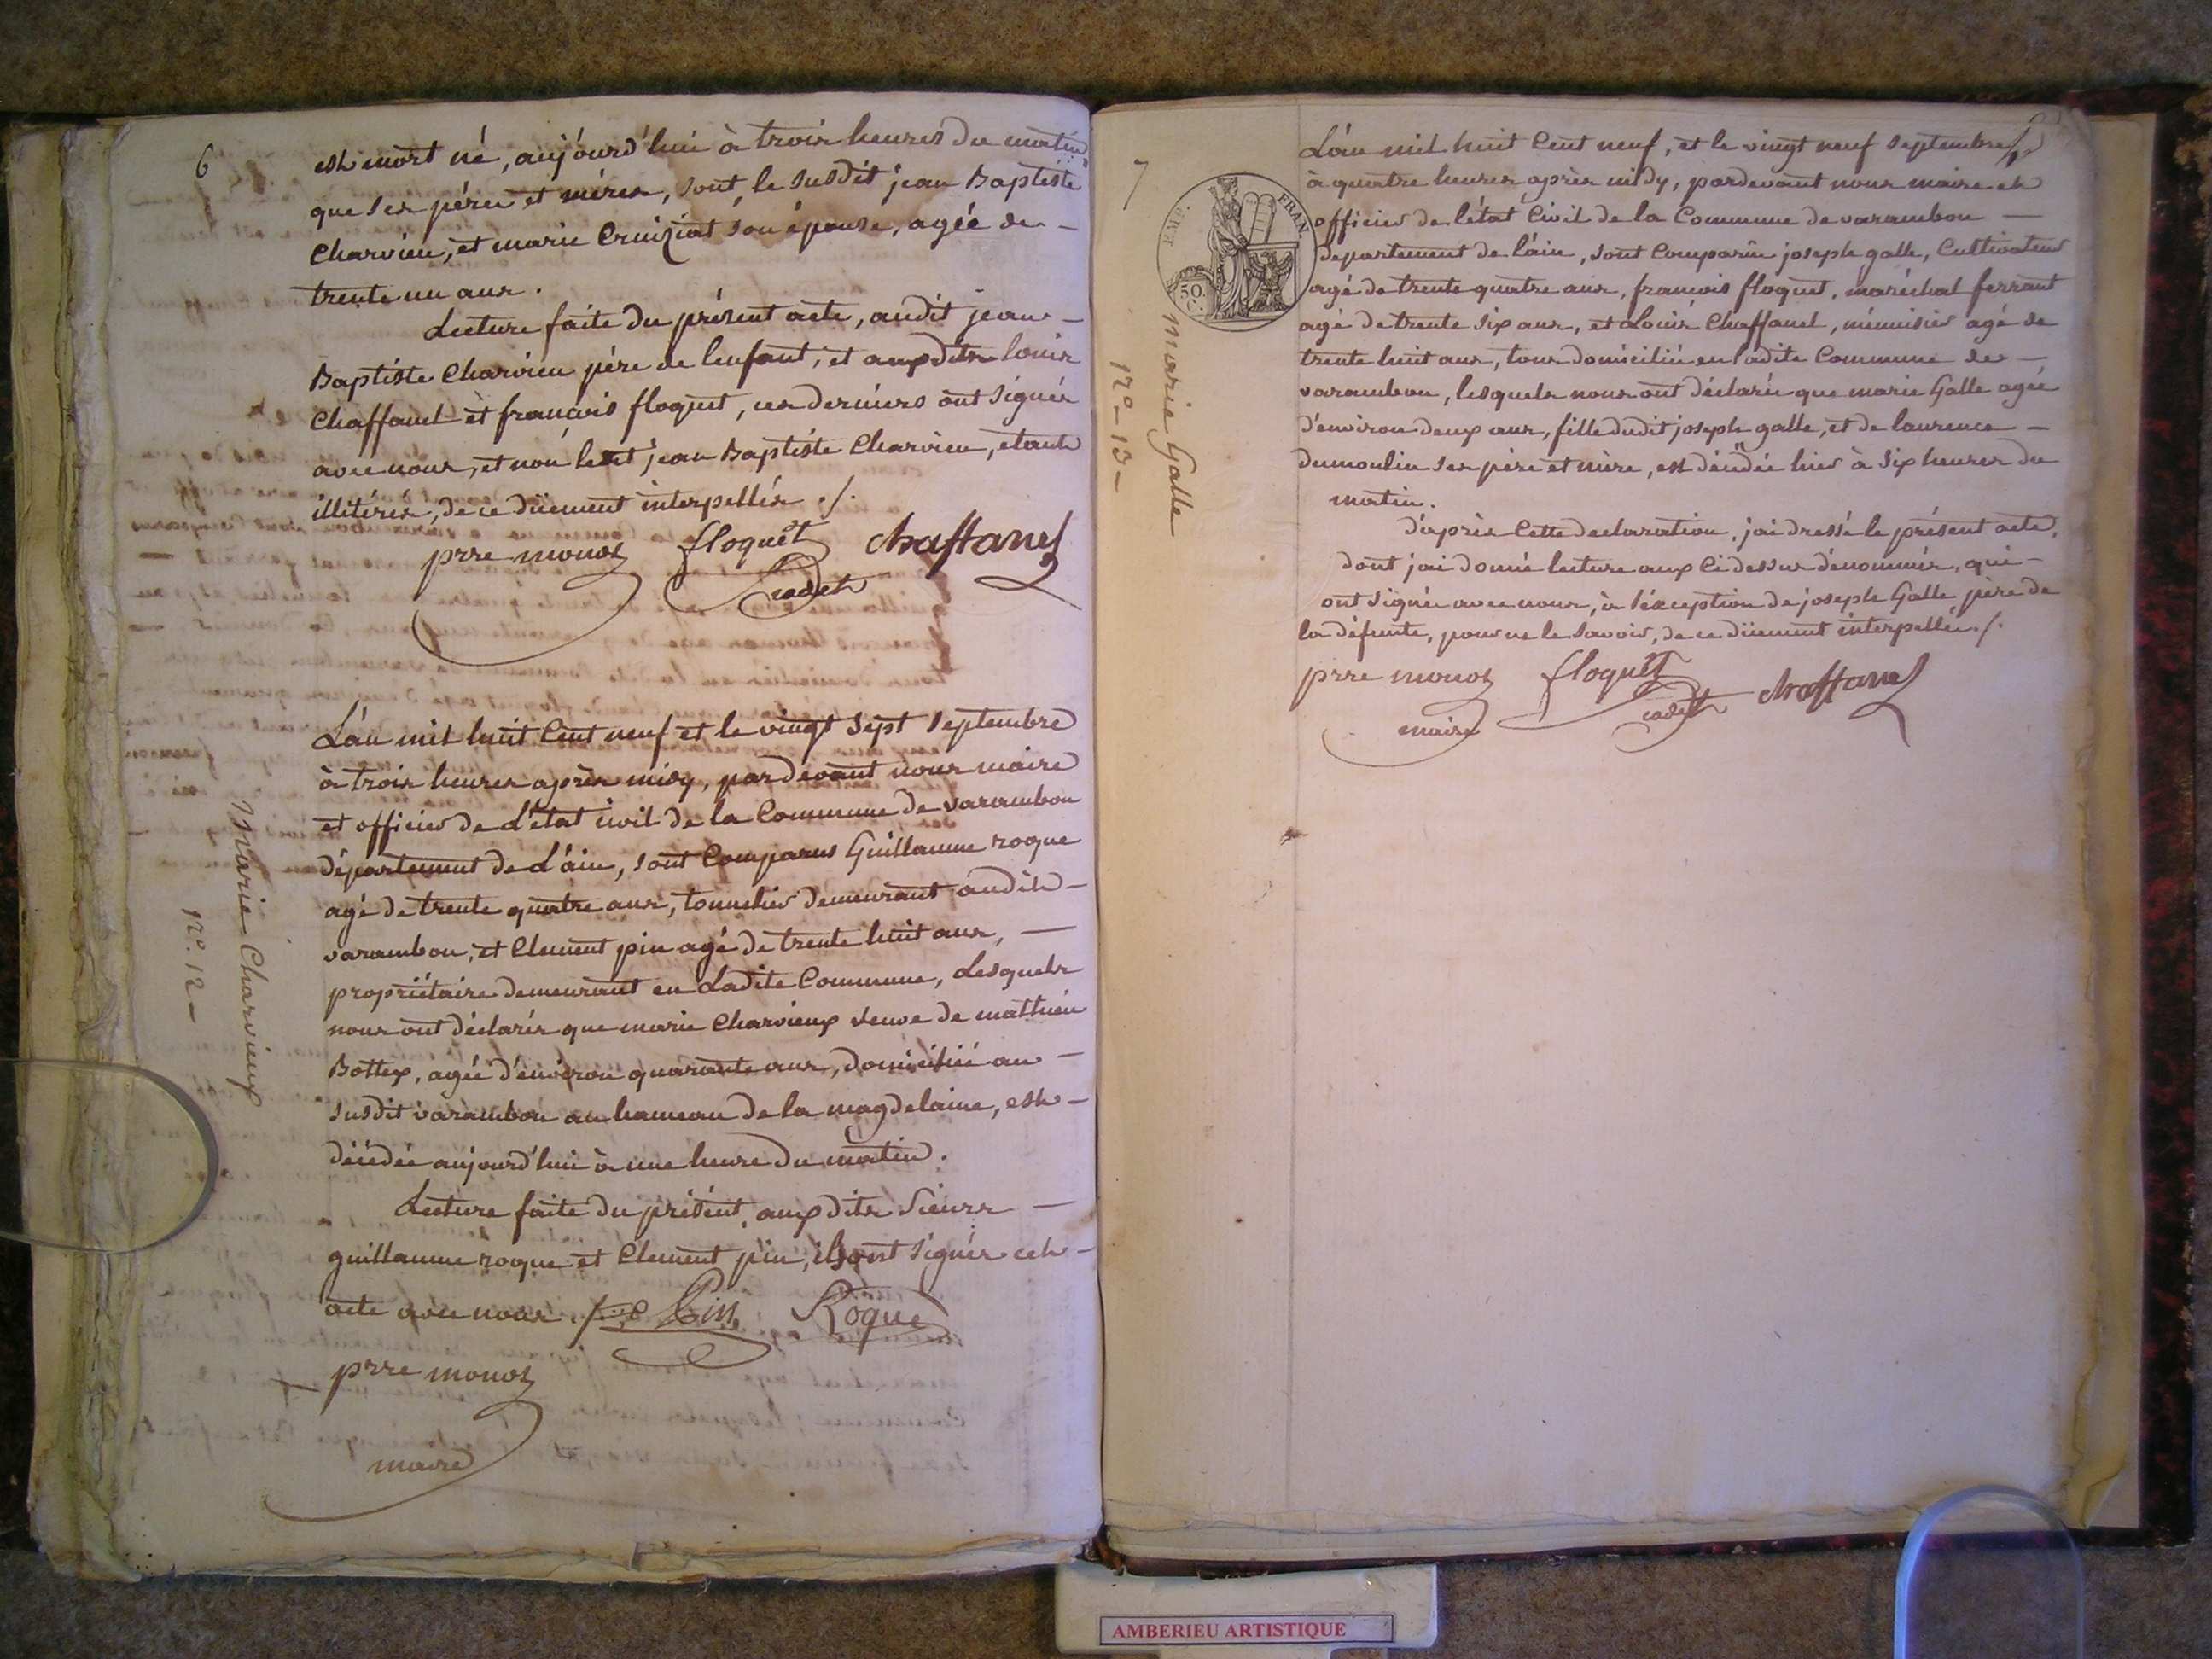 6
est mort né, aujourd'hui à trois heures du matin
que ses péres et méres, sont le susdit jean Baptiste
Charvieu, et marie Cruiziat son épouse, agée de –
trente un ans.
Lecture faite du présent acte, audit jean –
Baptiste Charvieu pére de lenfant, et aux dits louis
Chaffanel et françois floquet, ces derniers ont signés
avec nous, et non ledit jean Baptiste Charvieu, etant
illitérés, de ce düement interpellés ./.
prre monoz floquet Chaffanel
cadet
Marie Charvieux
N°. 12 –
L'an mil huit Cent neuf et le vingt sept septembre
à trois heures après midy, pardevant nous maire
et officier de L'état civil de la Commune de varambon
département de L'ain, sont Comparus Guillaume roque
agé de trente quatre ans, tonnelier demeurant audit –
varambon, et Clement pin agé de trente huit ans, –
propriétaire demeurant en Ladite Commune, Lesquels
nous ont déclarés que marie Charvieux veuve de mathieu
Bottex, agée d'environ quarante ans, domiciliée au –
susdit varambon au hameau de la magdelaine, est –
décédée aujourd'hui à une heure du matin.
Lecture faite du présent, aux dits Sieurs –
guillaume roque et Clement pin, ils ont signés cet –
acte avec nous ./. Pin Roque
prre monoz
maire
7
TIMB. IMP. FRAN.
50
C.
Marie Galle
N° – 13 –
L'an mil huit Cent neuf, et le vingt neuf septembre
à quatre heures après midy, pardevant nous maire et
officier de létat Civil de la Commune de varambon –
département de l'ain, sont Comparus joseph galle, Cultivateur
agé de trente quatre ans, françois floquet, maréchal ferrant
agé de trente six ans, et Louis Chaffanel, ménuisier agé de
trente huit ans, tous domiciliés en ladite Commune de –
varambon, lesquels nous ont déclarés que marie Galle agée
d'environ deux ans, fille dudit joseph galle, et de laurence –
dumoulin ses père et mère, est décédée hier à six heures du
matin.
d'après Cette declaration, jai dressé le présent acte,
dont jai donné lecture aux Cidessus dénommés, qui –
ont signés avec nous, à l'éxception de joseph Galle père de
la défunte, pour ne le savoir, de ce düement interpellé ./.
prre monoz floquet Chaffanel
maire cadet
AMBERIEU ARTISTIQUE